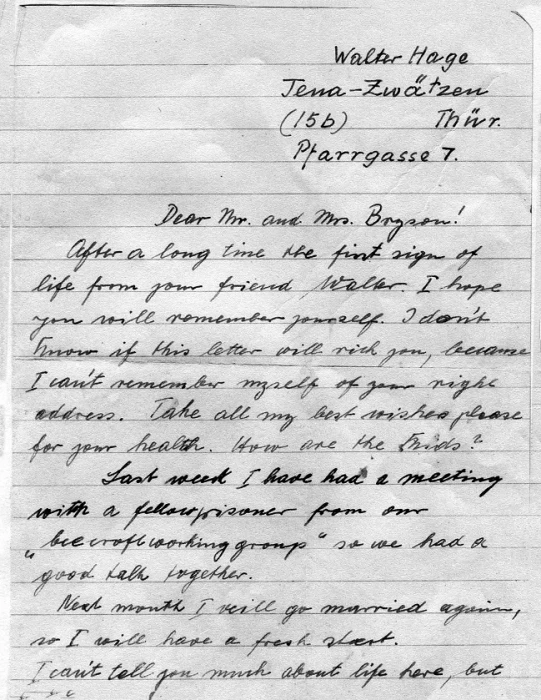 Walter Hage
Jena-Zwätzen
(15b) Thür.
Pfarrgasse 7.
Dear Mr. and Mrs. Bryson!
After a long time the first sign of
life from your friend Walter. I hope
you will remember yourself. I don't
know if this letter will rich you, because
I can't remember myself of your right
address. Take all my best wishes please
for your health. How are the Kids?
Last week I have had a meeting
with a fellowprisoner from our
„beecroftworkinggroup" so we had a
good talk together.
Next month I will go married again,
so I will have a fresh start.
I can't tell you much about life here, but